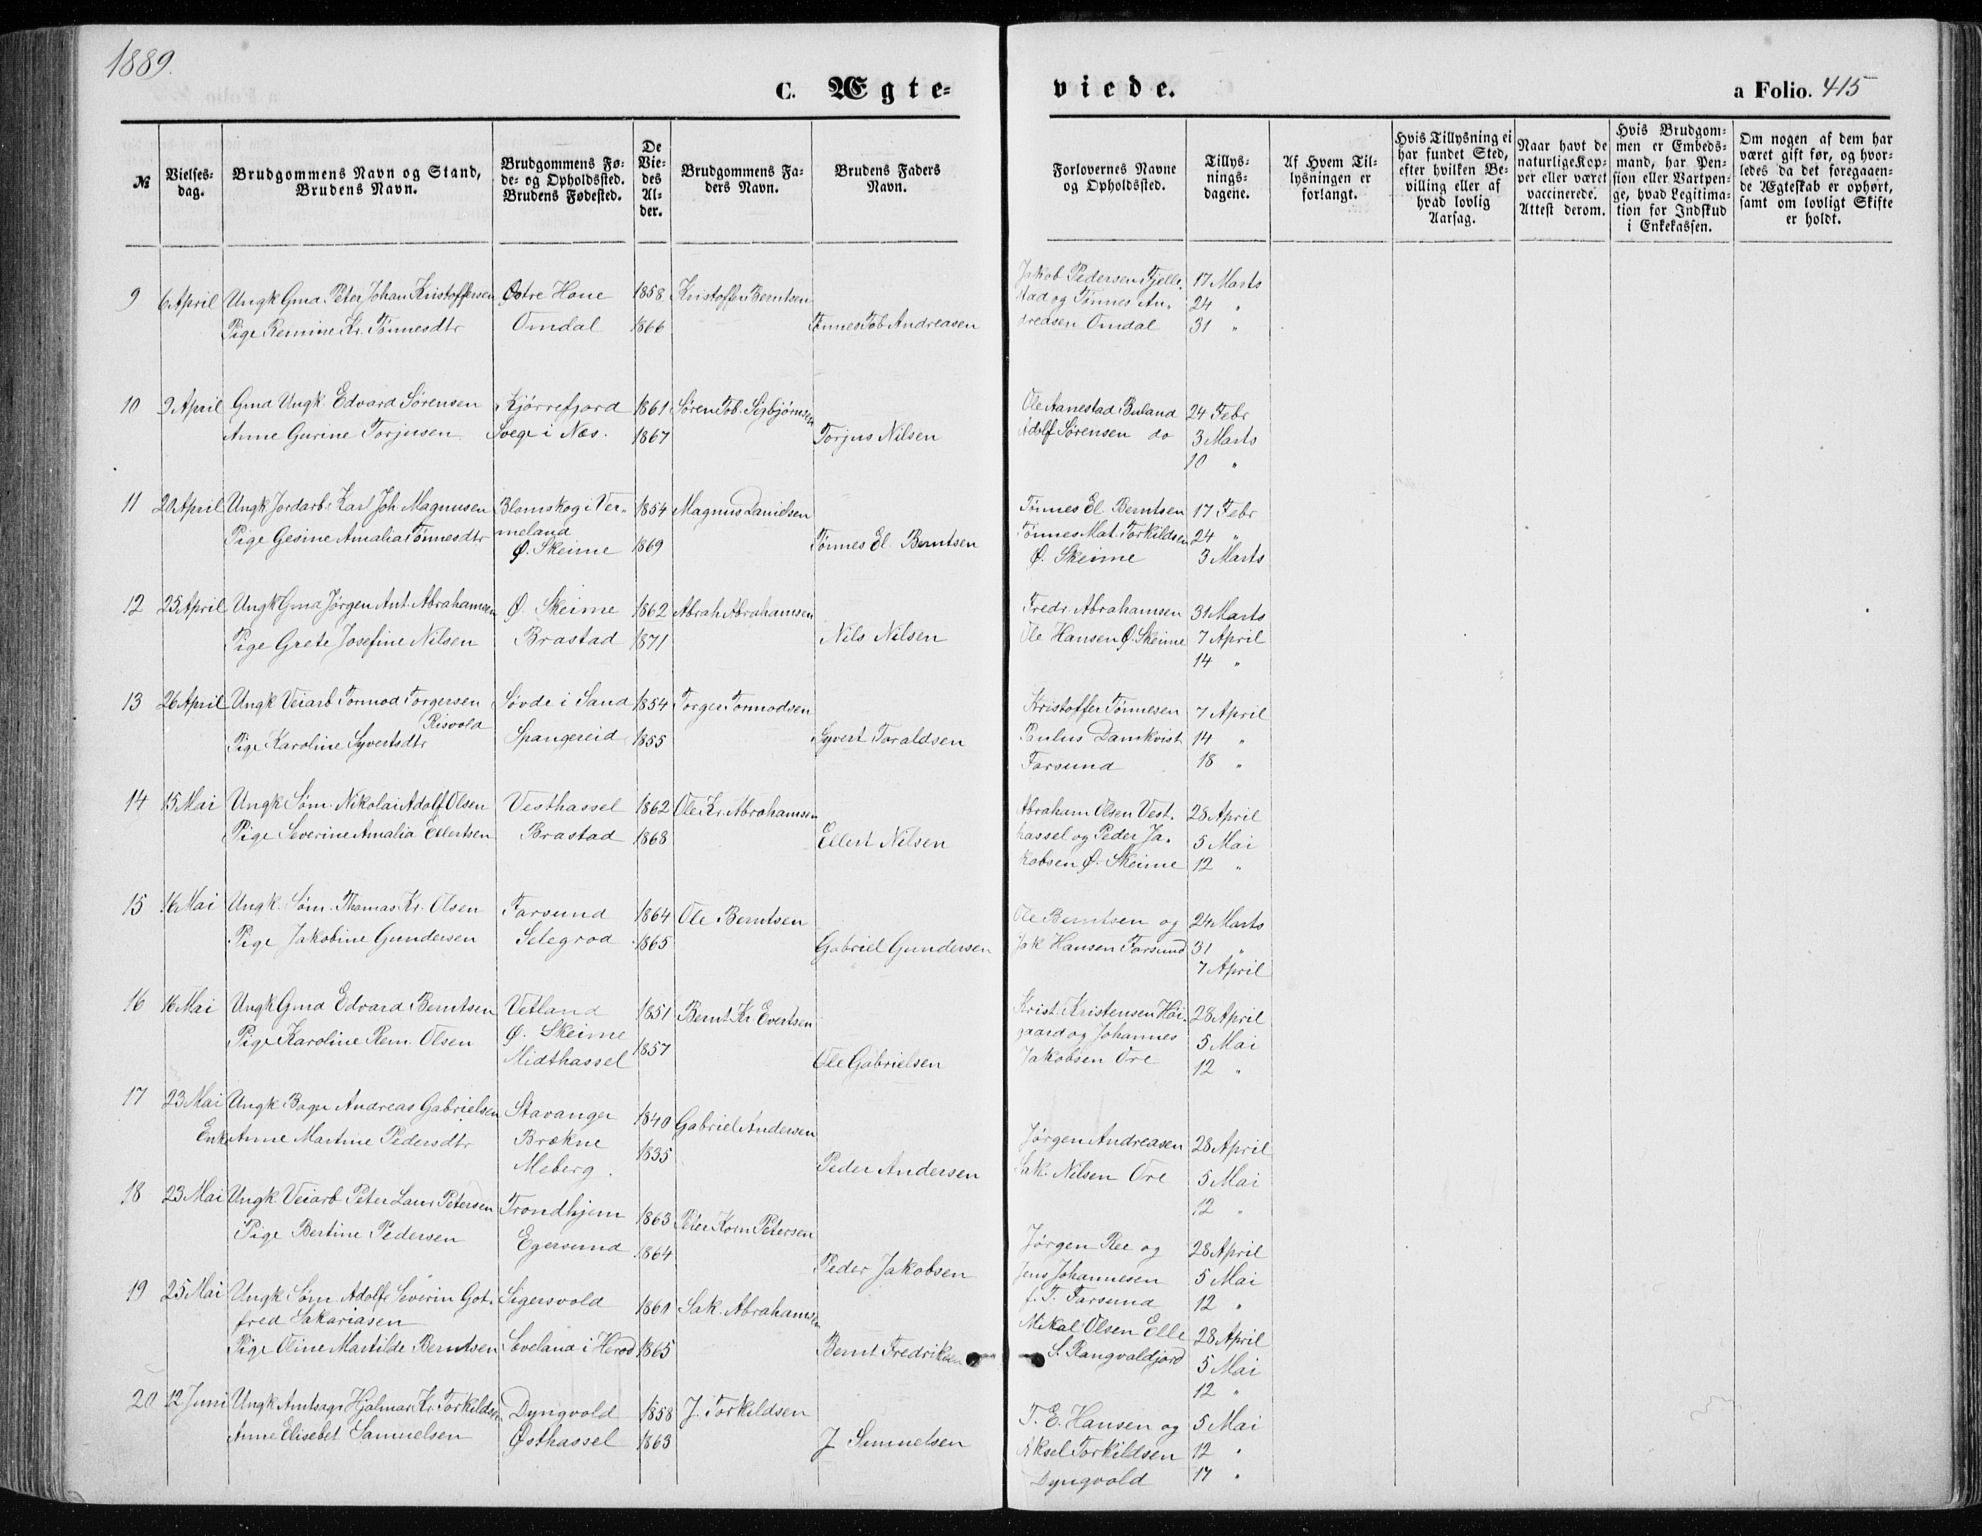 1889.
C. Ægte-
viede.
a Folio. 415
№
Vielses-
dag.
Brudgommens Navn og Stand,
Brudens Navn.
Brudgommens Fø-
de- og Opholdssted.
Brudens Fødested.
De
Vie-
des
Al-
der.
Brudgommens Fa-
ders Navn.
Brudens Faders
Navn.
Forlovernes Navne
og Opholdssted.
Tillys-
nings-
dagene.
Af Hvem Til-
lysningen er
forlangt.
Hvis Tillysning ei
har fundet Sted,
efter hvilken Be-
villing eller af
hvad lovlig
Aarsag.
Naar havt de
naturlige Kop-
per eller været
vaccinerede.
Attest derom.
Hvis Brudgom-
men er Embeds-
mand, har Pen-
sion eller Vartpen-
ge, hvad Legitima-
tion for Indskud
i Enkekassen.
Om nogen af dem har
været gift før, og hvor-
ledes da det foregaaen-
de Ægteskab er ophørt,
samt om lovligt Skifte
er holdt.
9 6 April Ungk Gmd. Peter Johan Kristoffersen Østre Hone 1858 Kristoffer Berntsen Jakob Pedersen Fjelle- 17 Marts
stad og Tønnes An- 24 "
Pige Remine Kr. Tønnesdtr Omdal 1866 Tønnes Tob Andreasen dreasen Omdal 31 "
10 9 April Gmd Ungk. Edvard Sørensen Kjørrefjord 1861 Søren Tob. Sigbjørnsen Ole Aanestad Buland 24 Febr
Anne Gurine Torjusen Svege i Næs. 1867 Torjus Nilsen Adolf Sørensen do 3 Marts
10 "
11 20 April Ungk Jordarb. Karl Joh Magnusen Blomskog i Ver- 1854 Magnus Danielsen Tønnes El Berntsen 17 Febr
Pige Gesine Amalia Tønnesdtr meland Tønnes Mat. Torkildsen 24 "
Ø. Skeime 1869 Tønnes El. Berntsen Ø. Skeime 3 Marts
12 25 April Ungk Gmd Jørgen Ant. Abrahamsen Ø. Skeime 1862 Abrah Abrahamsen Fredr. Abrahamsen 31 Marts
Pige Grete Josefine Nilsen Brastad 1871 Nils Nilsen Ole Hansen Ø. Skeime 7 April
14 "
13 26 April Ungk Veiarb Tormod Torgersen Søvde i Sand 1854 Torger Tormodsen Kristoffer Tønnesen 7 April
Risvold
Pige Karoline Syvertsdtr Spangereid 1855 Syvert Taraldsen Paulus Damkvist 14 "
Farsund 18 "
14 15 Mai Ungk Søm. Nikolai Adolf Olsen Vesthassel 1862 Ole Kr. Abrahamsen Abraham Olsen Vest- 28 April
Pige Severine Amalia Ellertsen Brastad 1868 Ellert Nilsen hassel og Peder Ja- 5 Mai
kobsen Ø. Skeime 12 "
15 16 Mai Ungk. Søm. Thomas Kr. Olsen Farsund 1864 Ole Berntsen Ole Berntsen og 24 Marts
Pige Jakobine Gundersen Selegrod 1865 Gabriel Gundersen Jak Hansen Farsund 31 "
7 April
16 16 Mai Ungk Gmd Edvard Berntsen Vetland 1851 Bernt Kr. Evertsen Krist. Kristensen Høi- 28 April
Ø. Skeime gaard og Johannes 5 Mai
Pige Karoline Rem. Olsen Midthassel 1857 Ole Gabrielsen Jakobsen Ore 12 "
17 23 Mai Ungk Bager Andreas Gabrielsen Stavanger 1840 Gabriel Andersen Jørgen Andreasen 28 April
Enke Anne Martine Pedersdtr Brækne
Meberg. 1835 Peder Andersen Sak. Nilsen Ore 5 Mai
12 "
18 23 Mai Ungk. Veiarb Peter Laur Petersen Trondhjem 1863 Peter Korn Petersen Jørgen Ree og 28 April
Pige Bertine Pedersen Egersund 1864 Peder Jakobsen Jens Johannesen 5 Mai
f. T. Farsund 12 "
19 25 Mai Ungk Søm Adolf Severin Got- Sigersvold 1861 Sak. Abrahamsen Mikal Olsen Elle 28 April
fred Sakariasen
Pige Oline Martilde Berntsen Loveland i Herod 1865 Bernt Fredriksen S. Rangvaldjord 5 Mai
12 "
20 12 Juni Ungk Amtsagr Hjalmar Kr. Torkildsen Dyngvold 1858 J. Torkildsen T. E. Hansen og 5 Mai
Anne Elisebet Samuelsen Østhassel 1863 J Samuelsen Aksel Torkildsen 12 "
Dyngvold 17 "